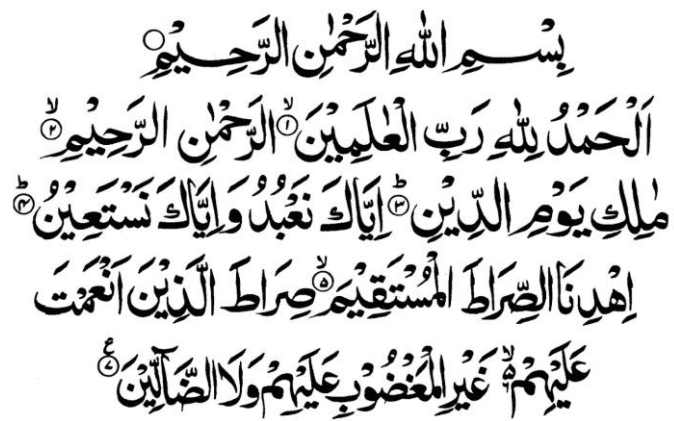 بِسْمِ اللهِ الرَّحْمٰنِ الرَّحِيْمِ
اَلْحَمْدُ لِلّٰهِ رَبِّ الْعٰلَمِيْنَ ۙ﴿۱﴾ الرَّحْمٰنِ الرَّحِيْمِ ۙ﴿۲﴾
مٰلِكِ يَوْمِ الدِّيْنِ ؕ﴿۳﴾ اِيَّاكَ نَعْبُدُ وَاِيَّاكَ نَسْتَعِيْنُ ؕ﴿۴﴾
اِهْدِنَا الصِّرَاطَ الْمُسْتَقِيْمَ ۙ﴿۵﴾ صِرَاطَ الَّذِيْنَ اَنْعَمْتَ
عَلَيْهِمْ ۙ۵ غَيْرِ الْمَغْضُوْبِ عَلَيْهِمْ وَلَا الضَّآلِّيْنَ ﴿۷﴾ ع